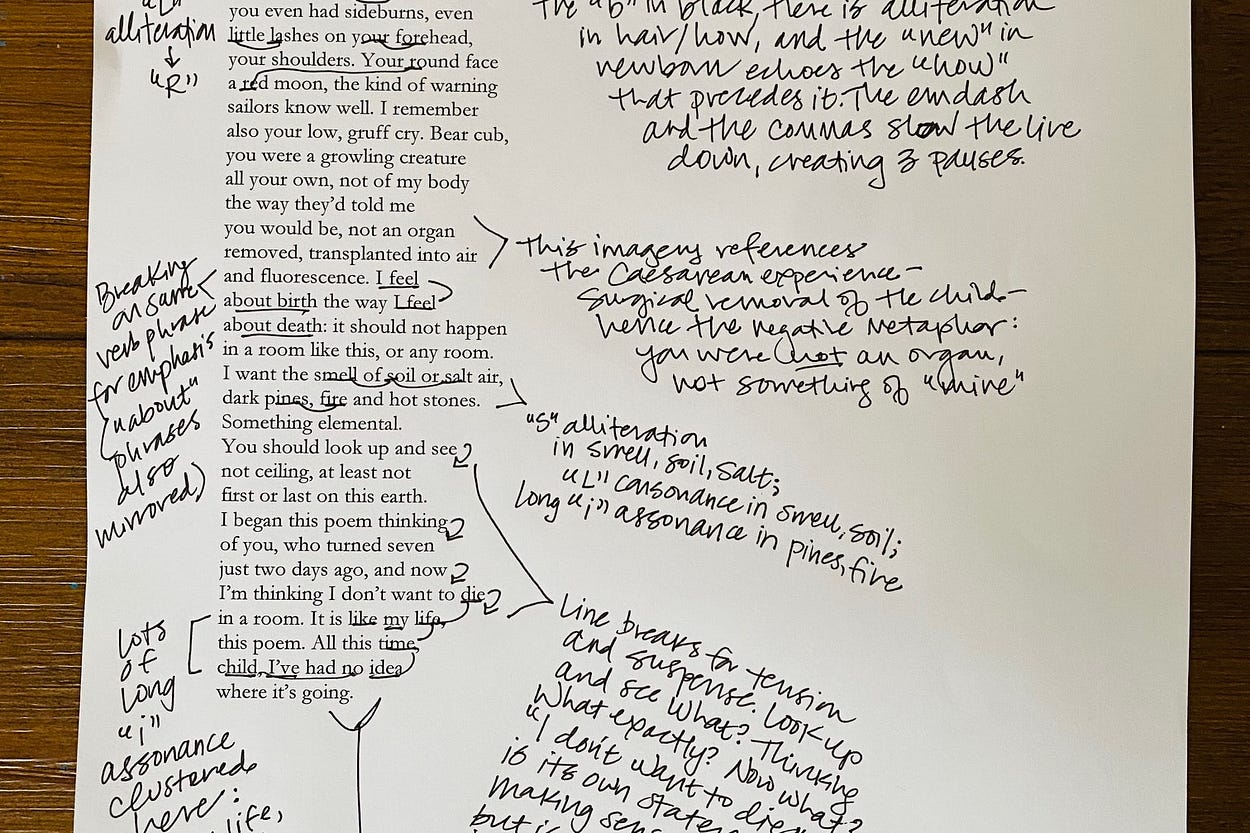 "L"
alliteration
↓
"R"
you even had sideburns, even
little lashes on your forehead,
your shoulders. Your round face
a red moon, the kind of warning
sailors know well. I remember
also your low, gruff cry. Bear cub,
you were a growling creature
all your own, not of my body
the way they'd told me
you would be, not an organ
removed, transplanted into air
and fluorescence. I feel
about birth the way I feel
about death: it should not happen
in a room like this, or any room.
I want the smell of soil or salt air,
dark pines, fire and hot stones.
Something elemental.
You should look up and see
not ceiling, at least not
first or last on this earth.
I began this poem thinking
of you, who turned seven
just two days ago, and now
I'm thinking I don't want to die
in a room. It is like my life,
this poem. All this time,
child, I've had no idea
where it's going.
the "b" in black, there is alliteration
in hair/how, and the "new" in
newborn echoes the "how"
that precedes it. The emdash
and the commas slow the live
down, creating 3 pauses.
this imagery references
the Caesarean experience—
surgical removal of the child—
hence the negative metaphor:
you were not an organ,
not something of "mine"
Breaking
on same
verb phrase
for emphasis
("about"
phrases
also
mirrored)
"S" alliteration
in smell, soil, salt;
"L" consonance in smell, soil;
long "i" assonance in pines, fire
Lots
of
long
"i"
assonance
clustered
here:
life,
Line breaks for tension
and suspense. Look up
and see what? Thinking
what exactly? Now what?
"I don't want to die"
is its own
making
but